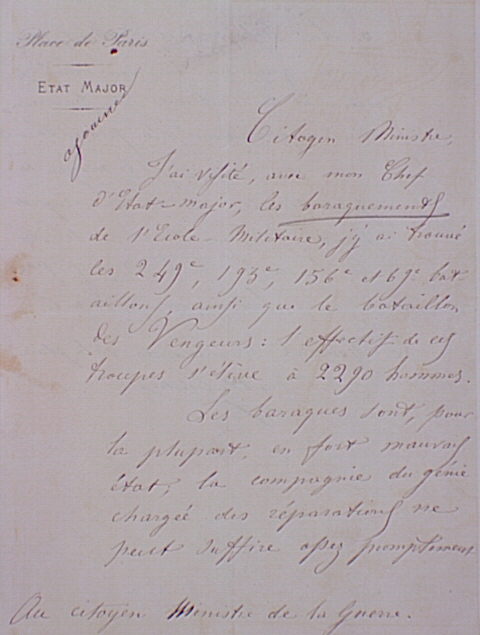 Place de Paris
ETAT MAJOR
Citoyen Ministre,
J'ai visité, avec mon Chef
d'Etat-major, les baraquements
de l'Ecole-Militaire, j'y ai trouvé
les 249e, 193e, 156e et 69e bat-
aillons, ainsi que le bataillon
des Vengeurs: l'effectif de ces
troupes s'élève à 2290 hommes.
Les baraques sont, pour
la plupart, en fort mauvais
état, la compagnie du génie
chargée des réparations ne
peut suffire assez promptement
Au citoyen Ministre de la Guerre.